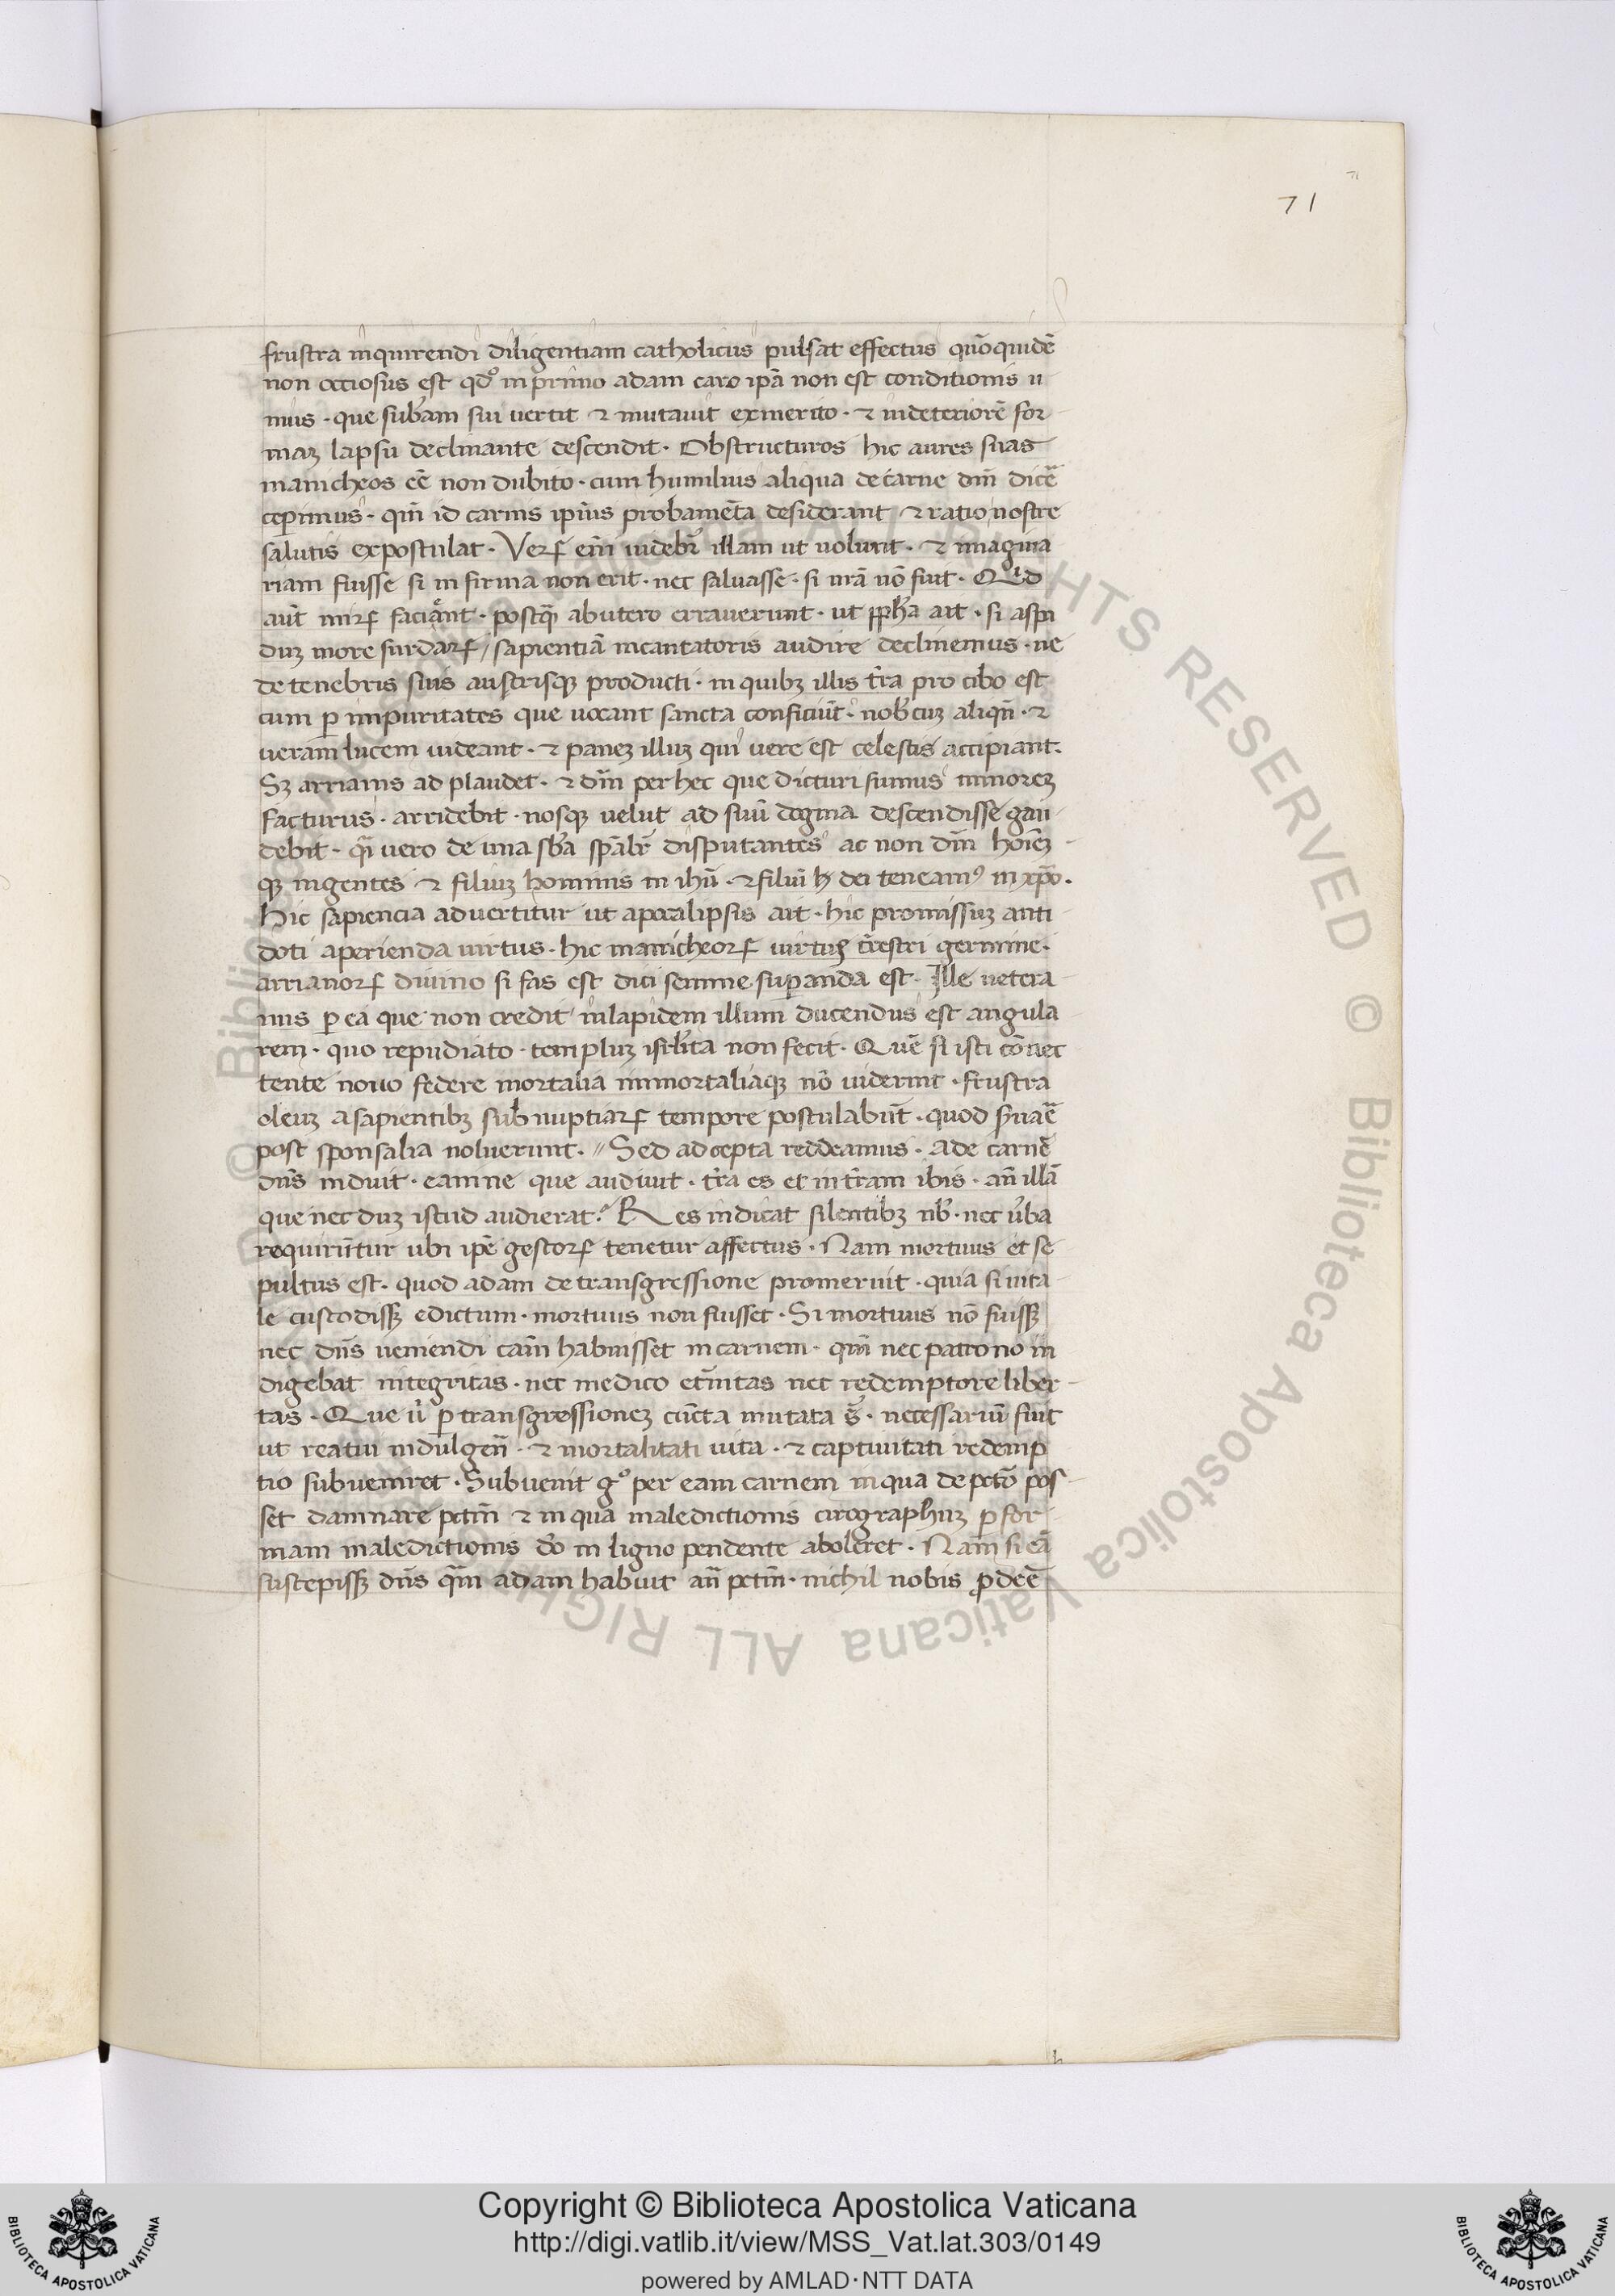 71
frustra inquirendi diligentiam catholicus pulsat effectus qūoquidē
non occiosus est qđo in primo adam caro ip̄a non est conditionis u
nius · que sub̄am sui vertit ⁊ mutavit exmerito · ⁊ indeteriorē for
maʒ lapsu declinante descendit · Obstructuros hic aures suas
manicheos eē non dubito · cum humilius aliqua de carne dn̄i dicē
ceperimus · qm̄ id carnis ipīus probamēta desiderant ⁊ ratio nostre
salutis expostulat · Veꝝ em̄ videbr̄ illam ut volunt · ⁊ imagina
riam fuisse si in firma non erit · nec salvasse · si nr̄a nō fuit · Qͥd
aūt miꝝ faciant · postqͣ ab utero erraverunt · ut ꝓph̄a ait · si aspi
duʒ more surdaꝝ / sapientiā incantatoris audire declinemus · ne
de tenebris suis austrisqʒ producti · in quibʒ illis tr̄a pro cibo est
cum ꝑ impuritates que vocant sancta conficiūt · nob̄cuʒ aliqn̄ · ⁊
veram lucem videant · ⁊ paneʒ illuʒ qui vere est celestis accipiant.
Sʒ arrianis ad plaudet · ⁊ dn̄m per hec que dicturi sumus minoreʒ
facturus · arridebit · nosqʒ velut ad suū dogma descendisse gau
debit · qͣi vero de una sb̄a sp̄alr̄ disputantes ac non dn̄m hoīeʒ
qʒ ingentes ⁊ filiuʒ hominis in ihū · ⁊ filiū ħ dei teneam⁹ in xp̄o.
Hic sapiencia advertitur ut apocalipsis ait · hic promissuʒ anti
doti aperienda virtus · hic manicheoꝝ virtus tr̄estri germine ·
arrianoꝝ divino si fas est dici semine suꝑanda est · Ille vetera
nus ꝑ ea que non credit inlapidem illum ducendus est angula
rem · quo repudiato · templuʒ isrl̄ita non fecit · Quē si isti cōnec
tente novo federe mortalia immortaliaqʒ nō viderint · frustra
oleuʒ a sapientibʒ sub nuptiaꝝ tempore postulabūt · quod
post sponsalia noluerunt · // Sed ad cepta reddeamus · Ade carnē
dn̄s induit · eamne que audivit · tr̄a es et in tr̄am ibis · an̄ illā
que nec duʒ istud audierat · Res indicat silentibʒ nb̄ · nec v̄ba
requirūtur ubi ip̄e gestoꝝ tenetur affectus · Nam mortuus et se
pultus est · quod adam de transgressione promeruit · quia si vita
le custodissʒ edictum · mortuus non fuisset · Si mortuus nō fuissʒ
nec dn̄s veniendi cām habuisset in carnem · qm̄ nec patrono in
digebat integritas · nec medico et̄nitas nec redemptore liber
tas · Que ū ꝑ transgressioneʒ cūcta mutata s̄ · necessariū fuit
ut reatui indulgen̄ · ⁊ mortalitati vita · ⁊ captivitati redemp
tio subveniret · Subvenit gͦ per eam carnem in qua de pctō pos
set damnare pctm̄ ⁊ in qua maledictionis cirographuʒ ꝑ for
mam maledictionis dō in ligno pendente aboleret · Nam si eā
suscepissʒ dn̄s qͣm adam habuit an̄ pctm̄ · nichil nobis ꝓdeē
Copyright © Biblioteca Apostolica Vaticana
http://digi.vatlib.it/view/MSS_Vat.lat.303/0149
powered by AMLAD·NTT DATA
BIBLIOTECA APOSTOLICA VATICANA
BIBLIOTECA APOSTOLICA VATICANA